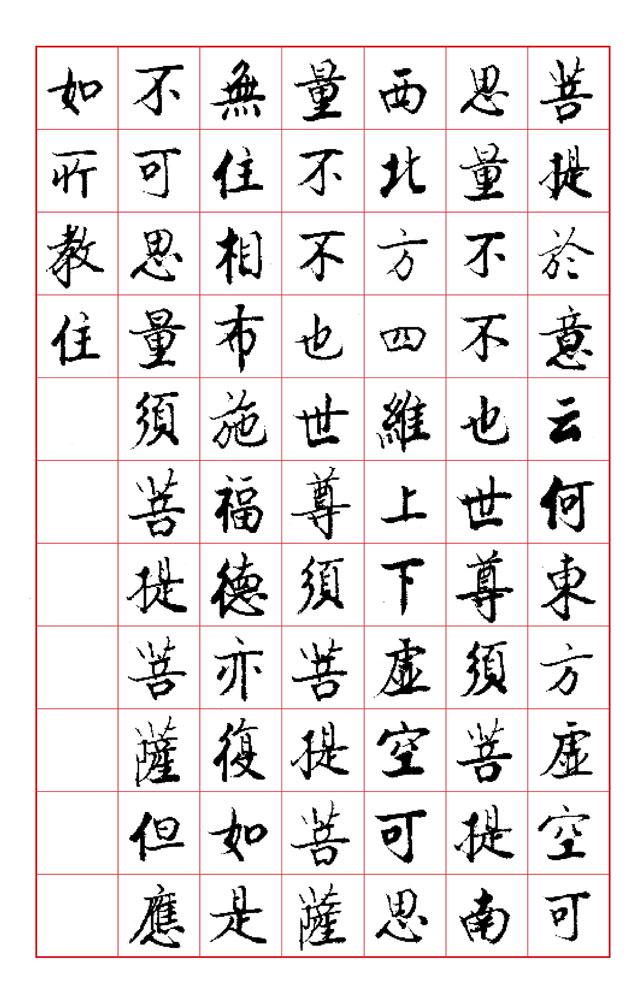 菩提於意云何東方虛空可
思量不不也世尊須菩提南
西北方四維上下虛空可思
量不不也世尊須菩提菩薩
無住相布施福德亦復如是
不可思量須菩提菩薩但應
如所教住